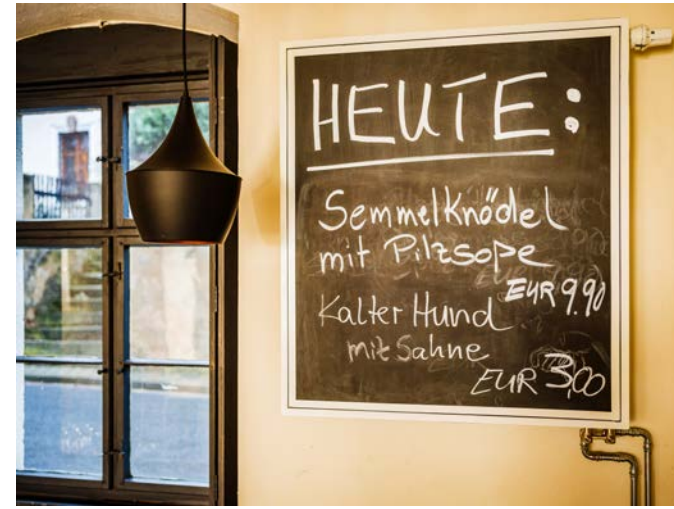 HEUTE:
Semmelknödel
mit Pilzsoße
EUR 9.90
Kalter Hund
mit Sahne
EUR 3,00